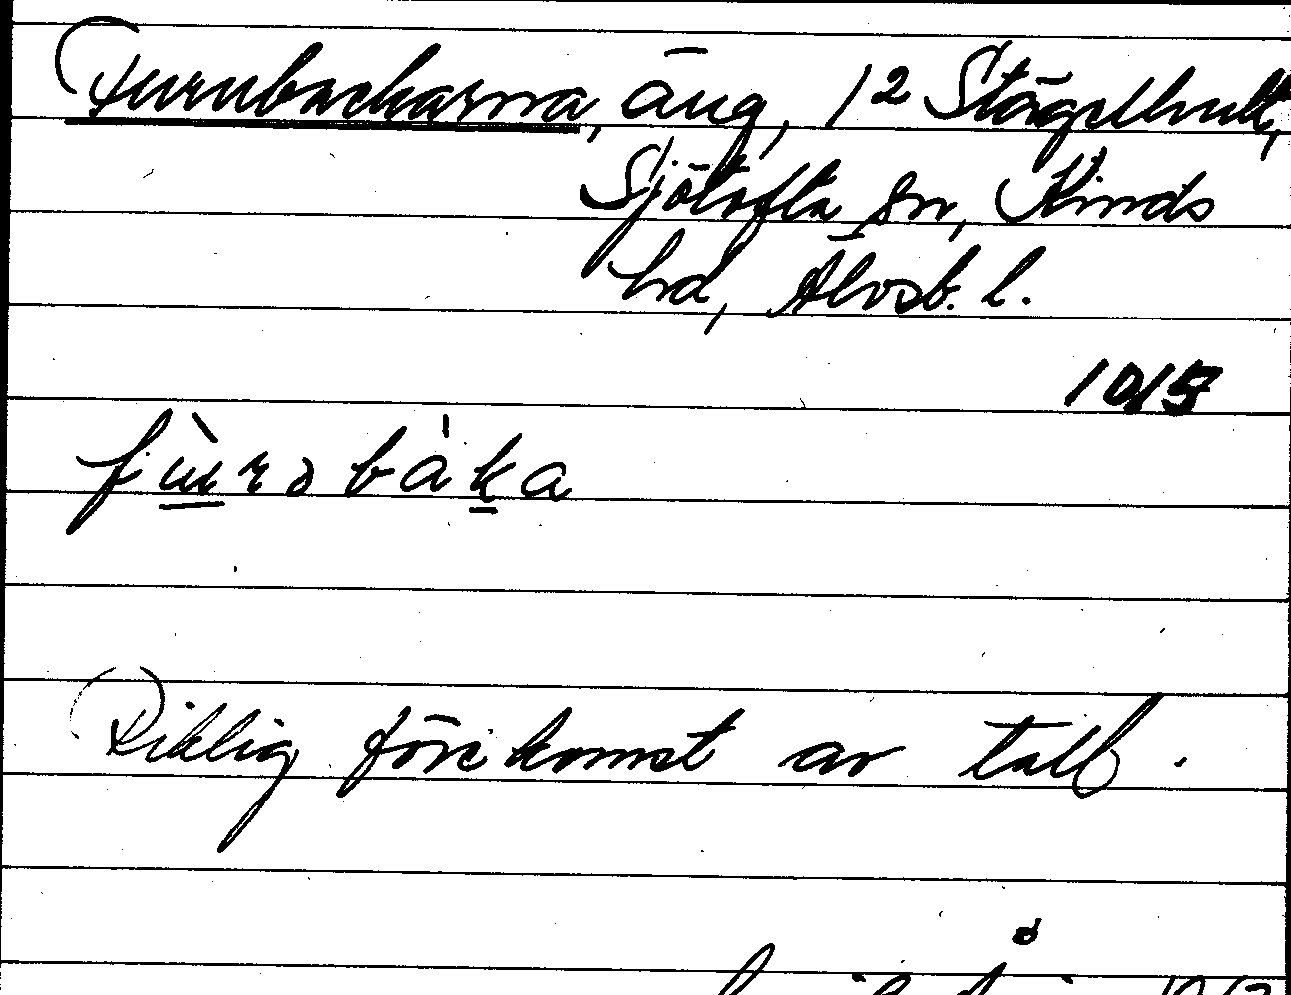 Furubackarna, äng, 1² Stägelhult,
Sjötofta sn, Kinds
hd, Älvsb. l.
10/5
fùrɔbáka
Riklig förekomst av tall.